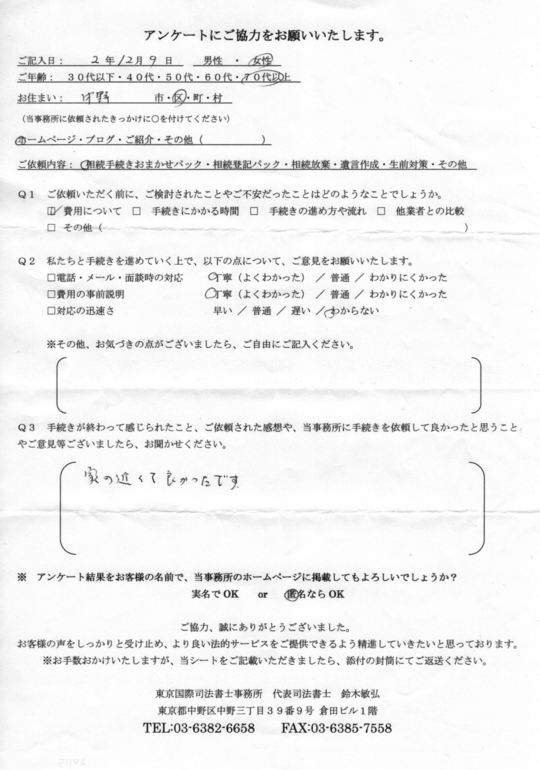 アンケートにご協力をお願いいたします。
ご記入日： 2 年 12月 9 日 男性 ・ 女性
ご年齢： 30代以下・40代・50代・60代・70代以上
お住まい： 中野 市・区・町・村
（当事務所に依頼されたきっかけに○を付けてください）
ホームページ・ブログ・ご紹介・その他（ ）
ご依頼内容： 相続手続きおまかせパック・相続登記パック・相続放棄・遺言作成・生前対策・その他
Q1 ご依頼いただく前に、ご検討されたことやご不安だったことはどのようなことでしょうか。
☑ 費用について □ 手続きにかかる時間 □ 手続きの進め方や流れ □ 他業者との比較
□ その他（ ）
Q2 私たちと手続きを進めていく上で、以下の点について、ご意見をお願いいたします。
□電話・メール・面談時の対応 丁寧（よくわかった） ／ 普通 ／ わかりにくかった
□費用の事前説明 丁寧（よくわかった） ／ 普通 ／ わかりにくかった
□対応の迅速さ 早い ／ 普通 ／ 遅い ／ わからない
※その他、お気づきの点がございましたら、ご自由にご記入ください。
Q3 手続きが終わって感じられたこと、ご依頼された感想や、当事務所に手続きを依頼して良かったと思うこと
やご意見等ございましたら、お聞かせください。
家の近くて良かったです
※ アンケート結果をお客様の名前で、当事務所のホームページに掲載してもよろしいでしょうか？
実名でOK or 匿名ならOK
ご協力、誠にありがとうございました。
お客様の声をしっかりと受け止め、より良い法的サービスをご提供できるよう精進していきたいと思っております。
※お手数おかけいたしますが、当シートをご記載いただきましたら、添付の封筒にてご返送ください。
東京国際司法書士事務所 代表司法書士 鈴木敏弘
東京都中野区中野三丁目39番9号 倉田ビル1階
TEL:03-6382-6658 FAX:03-6385-7558